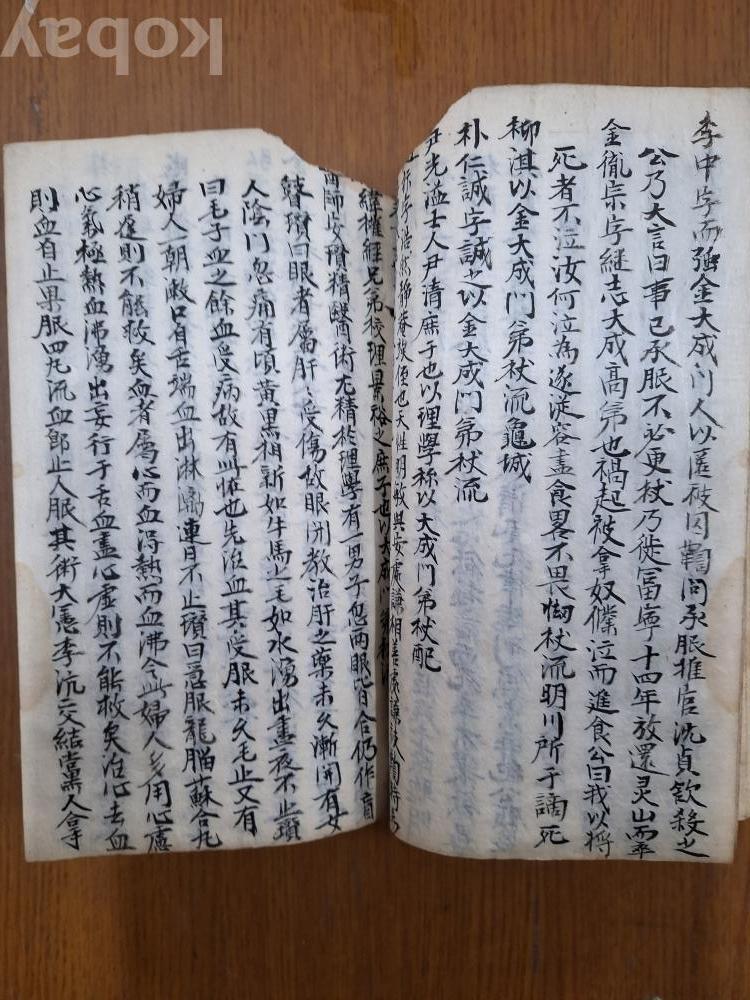 李中字而強金大成門人以匿被囚鞫問承服推官沈貞欲殺之
公乃大言曰事已承服不必更杖乃徙富寧十四年放還灵山而卒
金胤宗字継志大成高弟也禍起被拿奴僕泣而進食公曰我以将
死者不泣汝何泣為遂従容盡食畧不畏怯杖流明川所于謫死
柳淇以金大成門弟杖流龜城
朴仁誠字誠之以金大成門弟杖流
尹光溢士人尹清庶子也以理學称以大成門弟杖配
字浩然靜春放
天性明敏與安處謙相善處謙
継権経兄弟校理景裕之庶子也以大成門弟杖流
醫師安瓚精醫術尤精於理學有一男子忽两眼皆合仍作盲
瞽瓚曰眼者属肝肝受傷故眼閉教治肝之藥未久漸開有女
人陰門忽痛有頃黄黒相新如牛馬之毛如水湧出晝夜不止瓚
曰毛子血之餘血受病故有此怪也先治血其受服未久毛止又有
婦人一朝漱口自舌端血出淋漓連日不止瓚曰急服龍腦蘇合丸
稍遅則不能救矣血者属心而血得熱而血沸今此婦人多用心慮
心氣極熱血沸湧出妄行于舌血盡心虚則不能救矣治心去血
則血自止果服四丸流血即止人服其術大憲李沆交結黨人拿
kobay